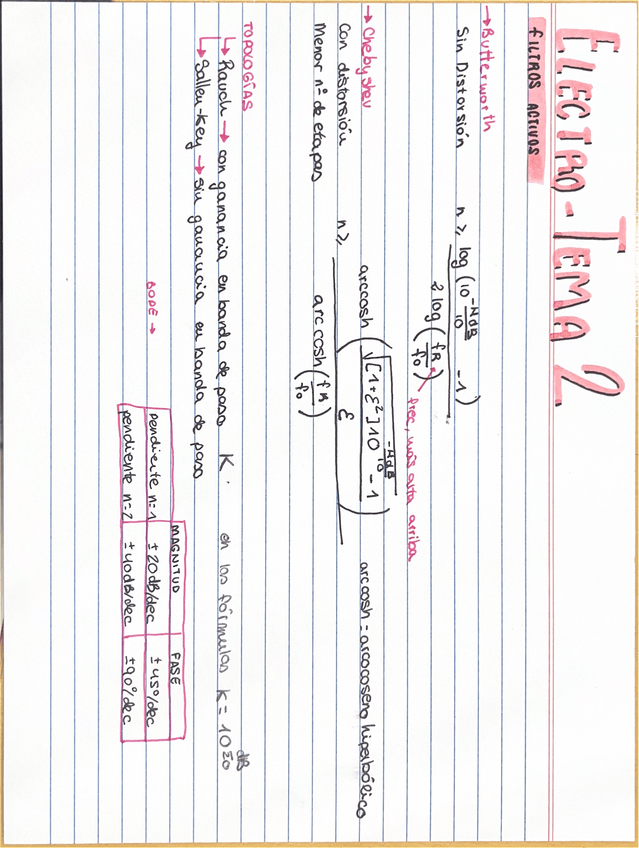 ELECTRO-TEMA 2
FILTROS ACTIVOS
→ Butterworth
Sin Distorsión n ≥ log (10^(-HdB/10) - 1) / 2 log (fR/f0)
frec, más alta arriba
→ Chebyshev
Con distorsión
Menor nº de etapas n ≥ arccosh (√([1+ε²]10^(-HdB/10) - 1) / ε) / arccosh (fR/f0)
arccosh = arcocoseno hiperbólico
TOPOLOGÍAS
↳ Rauch → con ganancia en banda de paso K · en las fórmulas K = 10^(dB/20)
↳ Sallen-Key → sin ganancia en banda de paso
BODE →
MAGNITUD FASE
pendiente n=1 ±20dB/dec ±45º/dec
pendiente n=2 ±40dB/dec ±90º/dec